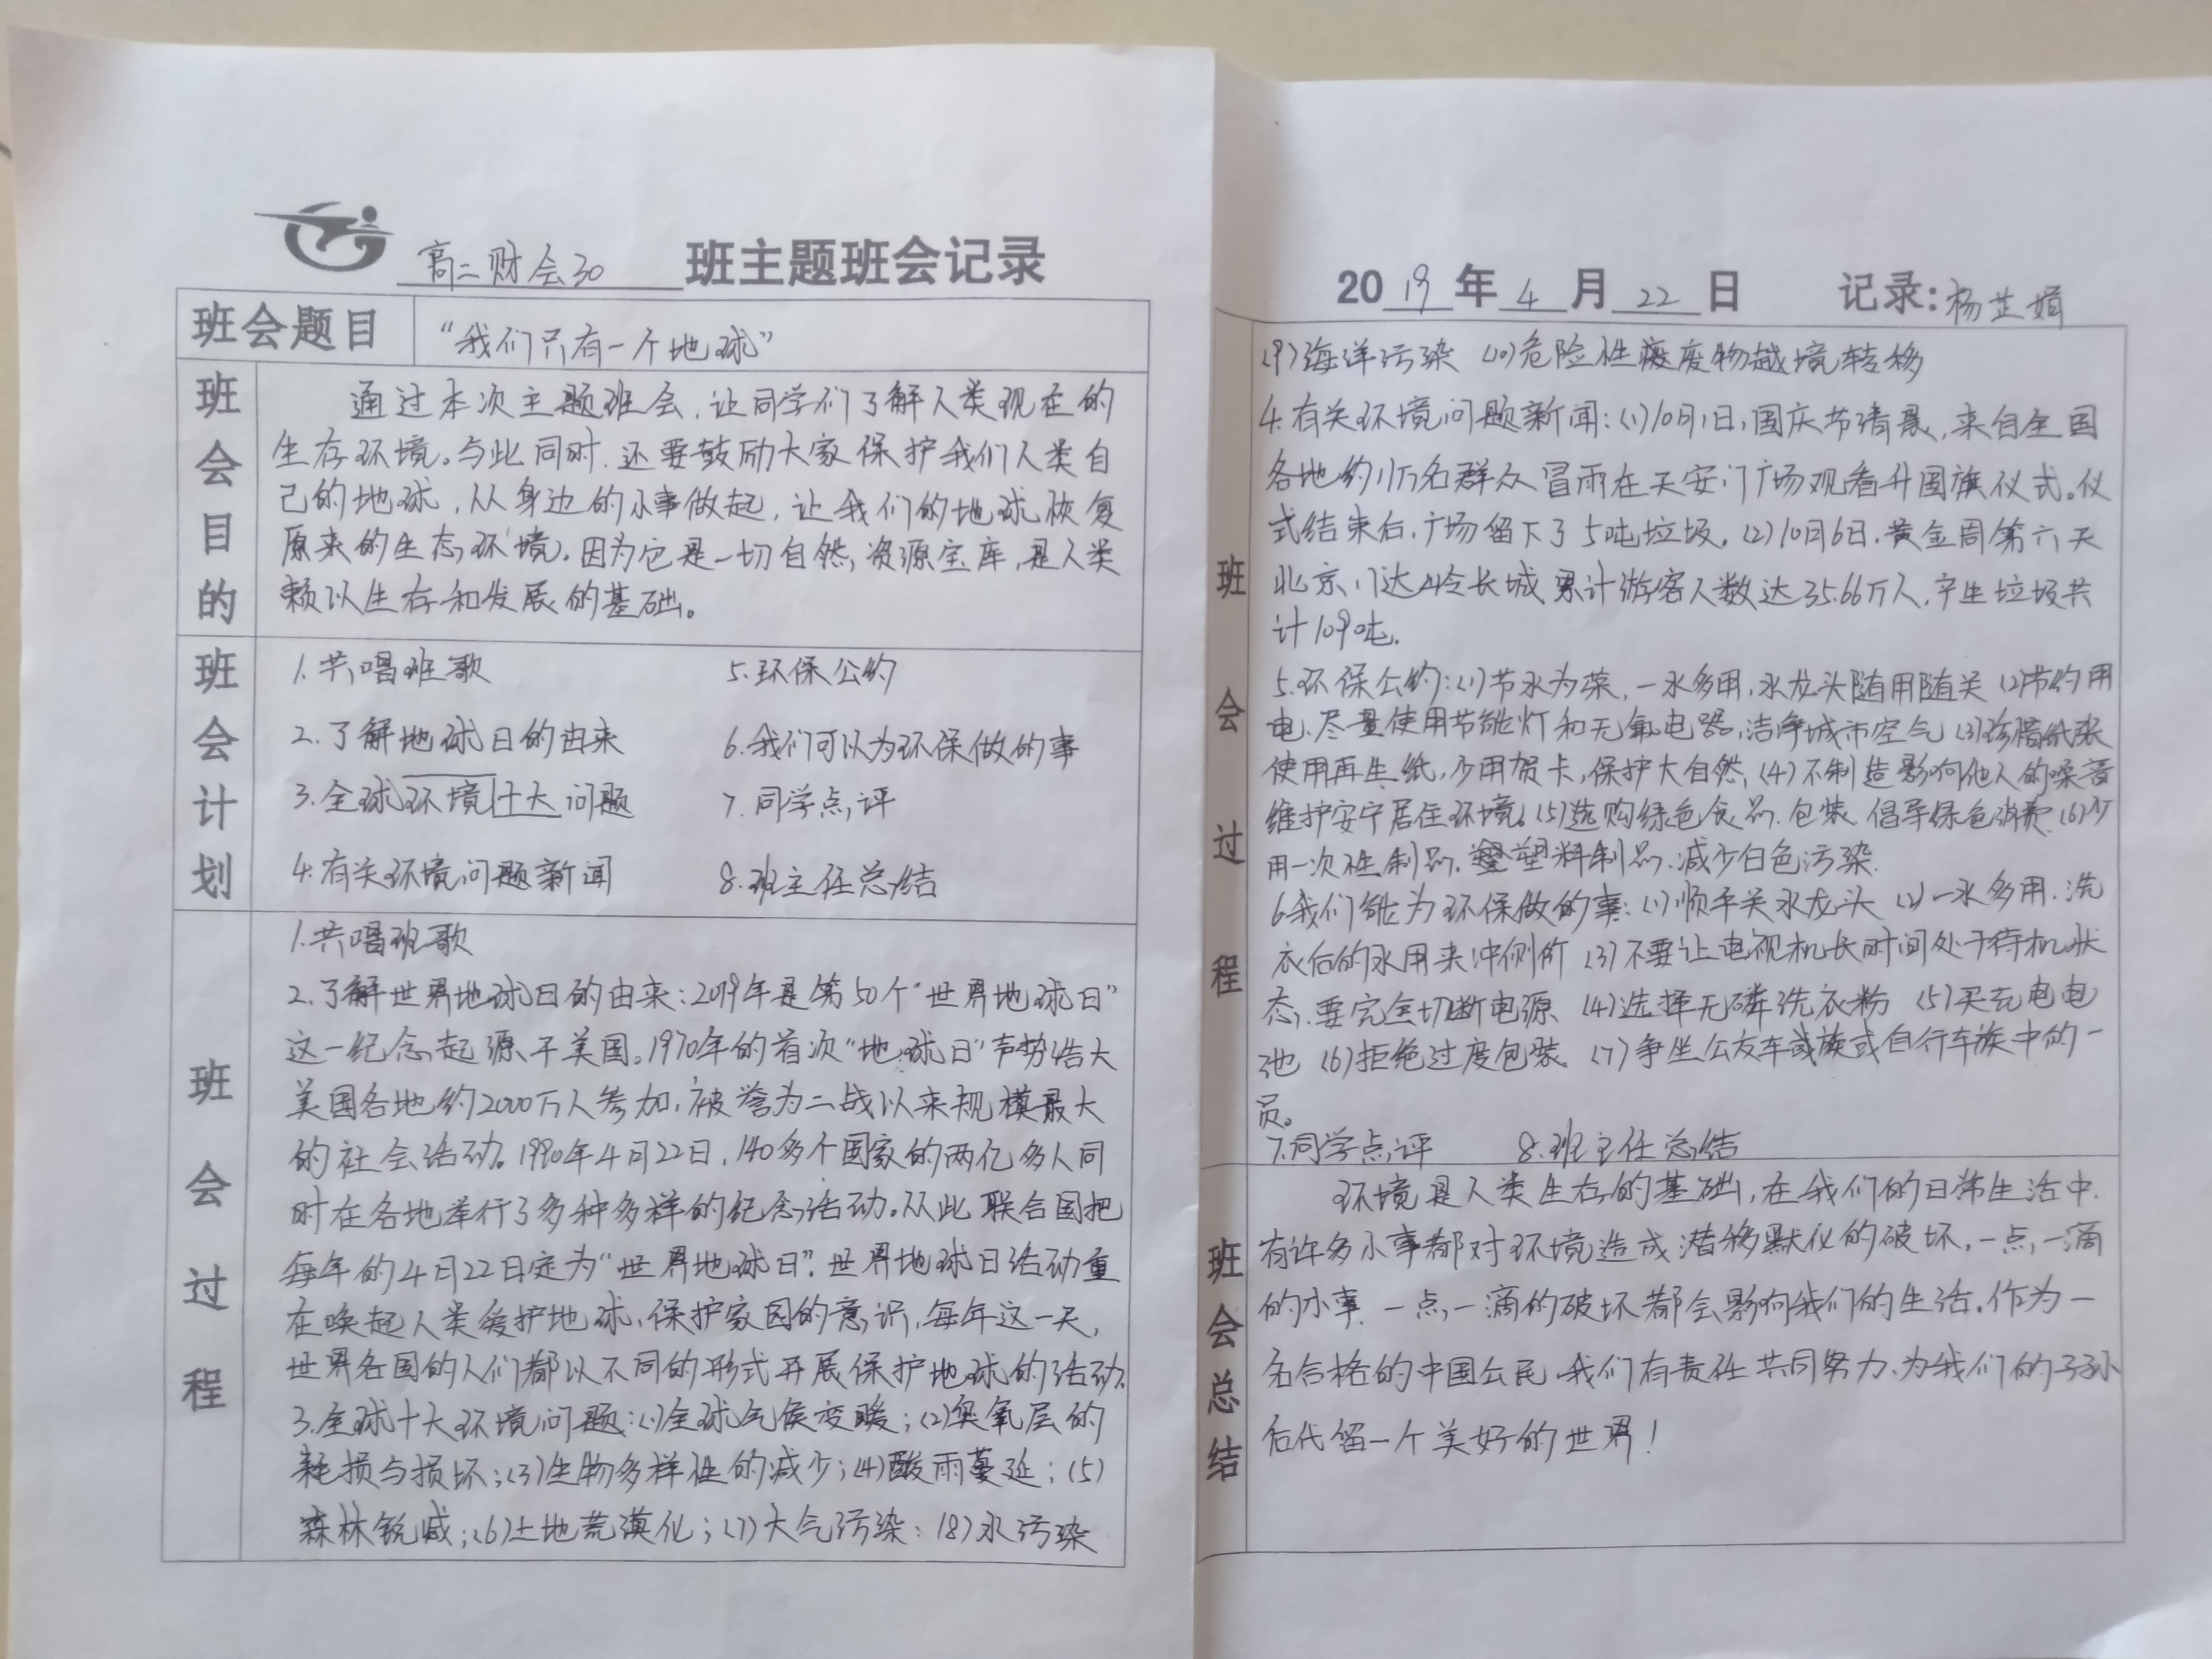 高二财会30 班主题班会记录
班会题目 “我们只有一个地球”
班会目的
通过本次主题班会,让同学们了解人类现在的
生存环境。与此同时,还要鼓励大家保护我们人类自
己的地球,从身边的小事做起,让我们的地球恢复
原来的生态环境。因为它是一切自然资源宝库,是人类
赖以生存和发展的基础。
班会计划
1.共唱班歌 5.环保公约
2.了解地球日的由来 6.我们可以为环保做的事
3.全球环境十大问题 7.同学点评
4.有关环境问题新闻 8.班主任总结
班会过程
1.共唱班歌
2.了解世界地球日的由来:2019年是第50个“世界地球日”
这一纪念起源于美国。1970年的首次“地球日”声势浩大
美国各地约2000万人参加,被誉为二战以来规模最大
的社会活动。1990年4月22日,140多个国家的两亿多人同
时在各地举行了多种多样的纪念活动。从此联合国把
每年的4月22日定为“世界地球日”。世界地球日活动重
在唤起人类爱护地球,保护家园的意识,每年这一天,
世界各国的人们都以不同的形式开展保护地球的活动。
3.全球十大环境问题:(1)全球气候变暖;(2)臭氧层的
耗损与损坏;(3)生物多样性的减少;(4)酸雨蔓延;(5)
森林锐减;(6)土地荒漠化;(7)大气污染;(8)水污染
2019年4月22日 记录:杨芷娟
班会过程
(9)海洋污染 (10)危险性废物越境转移
4.有关环境问题新闻:(1)10月1日,国庆节清晨,来自全国
各地约11万名群众冒雨在天安门广场观看升国旗仪式。仪
式结束后,广场留下了5吨垃圾。(2)10月6日,黄金周第六天
北京八达岭长城累计游客人数达35.66万人,产生垃圾共
计109吨。
5.环保公约:(1)节水为荣,一水多用,水龙头随用随关 (2)节约用
电,尽量使用节能灯和无氟电器,洁净城市空气 (3)珍惜纸张
使用再生纸,少用贺卡,保护大自然,(4)不制造影响他人的噪音
维护安宁居住环境。(5)选购绿色食品、包装,倡导绿色消费 (6)少
用一次性制品,塑料制品,减少白色污染.
6.我们能为环保做的事:(1)顺手关水龙头 (2)一水多用,洗
衣后的水用来冲厕所 (3)不要让电视机长时间处于待机状
态,要完全切断电源 (4)选择无磷洗衣粉 (5)买充电电
池 (6)拒绝过度包装 (7)争坐公交车或族或自行车族中的一
员。
7.同学点评 8.班主任总结
班会总结
环境是人类生存的基础,在我们的日常生活中,
有许多小事都对环境造成潜移默化的破坏,一点一滴
的小事,一点一滴的破坏都会影响我们的生活。作为一
名合格的中国公民,我们有责任共同努力,为我们的子孙
后代留一个美好的世界!